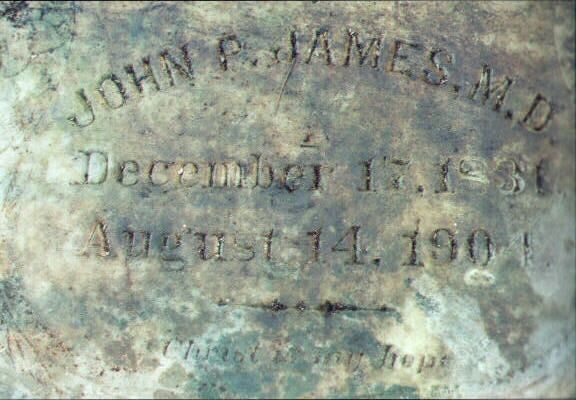 JOHN P. JAMES, M.D.
December 17, 1831
August 14, 1904
Christ is my hope